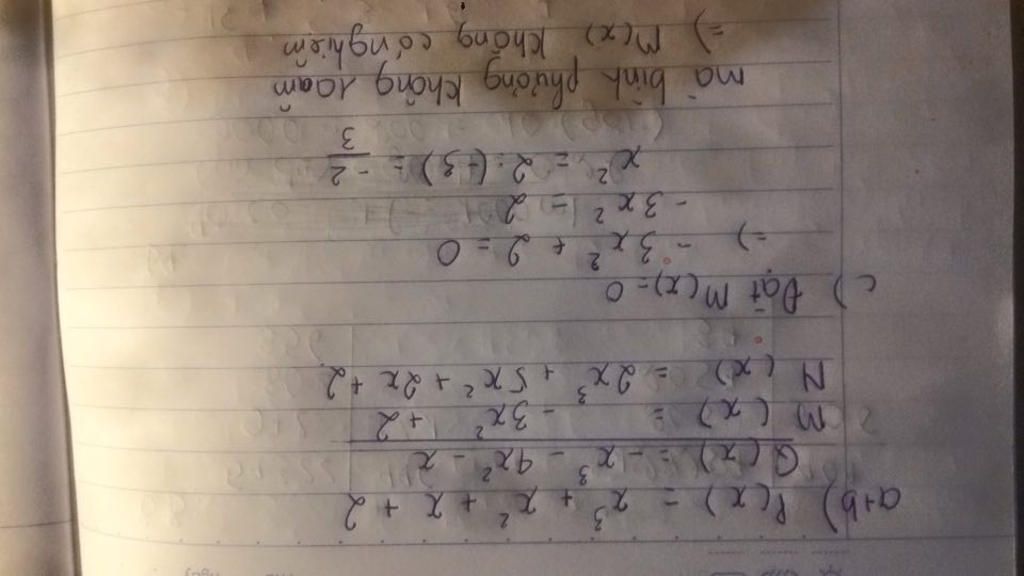 a+b) P(x) = x³ + x² + x + 2
Q(x) = -x³ - 4x² - x
M(x) = -3x² + 2
N(x) = 2x³ + 5x² + 2x + 2
c) Đặt M(x) = 0
=) -3x² + 2 = 0
-3x² = 2
x² = 2:(-3) = -2/3
mà bình phương không âm
=) M(x) không có nghiệm